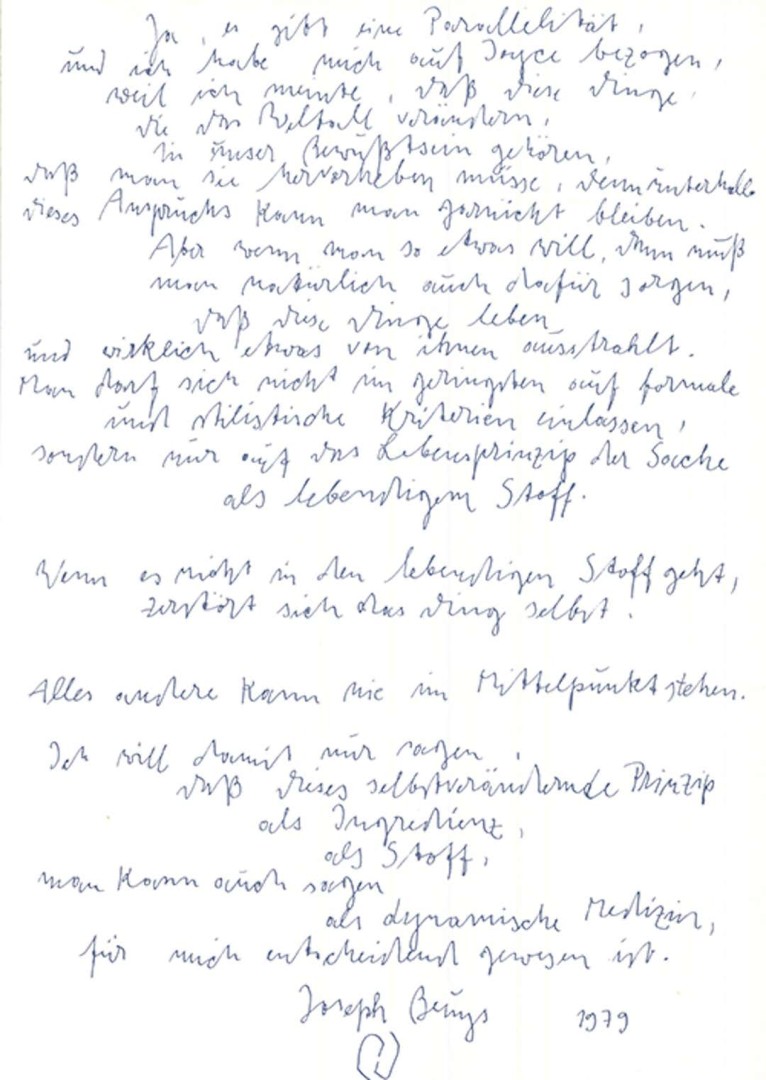 Ja, es gibt eine Parallelität,
und ich habe mich auf Joyce bezogen,
weil ich meinte, daß diese Dinge
die das Weltall verändern,
in unser Bewußtsein gehören,
daß man sie hervorheben müsse, denn unterhalb
dieses Anspruchs kann man garnicht bleiben.
Aber wenn man so etwas will, dann muß
man natürlich auch dafür sorgen,
daß diese Dinge leben
und wirklich etwas von ihnen ausstrahlt.
Man darf sich nicht im geringsten auf formale
und stilistische Kriterien einlassen,
sondern nur auf das Lebensprinzip der Sache
als lebendigem Stoff.
Wenn es nicht in den lebendigen Stoff geht,
zerstört sich das Ding selbst.
Alles andere kann nie im Mittelpunkt stehen.
Ich will damit nur sagen,
daß dieses selbstverändernde Prinzip
als Ingredienz,
als Stoff,
man kann auch sagen
als dynamische Medizin,
für mich entscheidend gewesen ist.
Joseph Beuys 1979